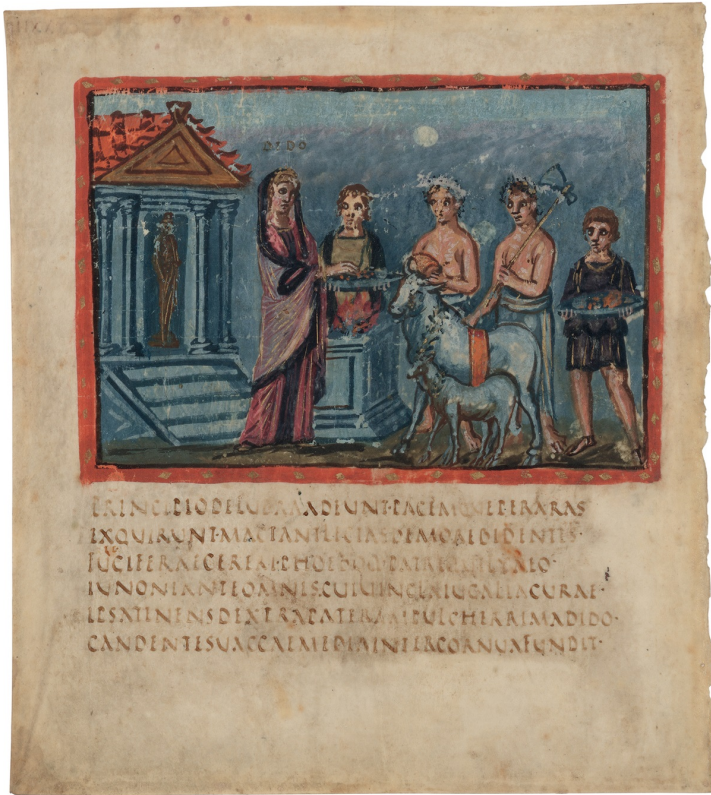 DIDO
PRINCIPIODELUBRAADEUNT·PACEMQUEPERARAS
EXQUIRUNT·MACTANTLECTASDEMOREBIDENTIS·
CERERI·PHOEBOQUEPATRIQUELYAEO·
IUNONIANTEOMNISCUIUINCLAIUGALIACURAE·
TENENSDEXTRAPATERAMPULCHERRIMADIDO·
CANDENTESUACCAEMEDIAINTERCORNUAFUNDIT·